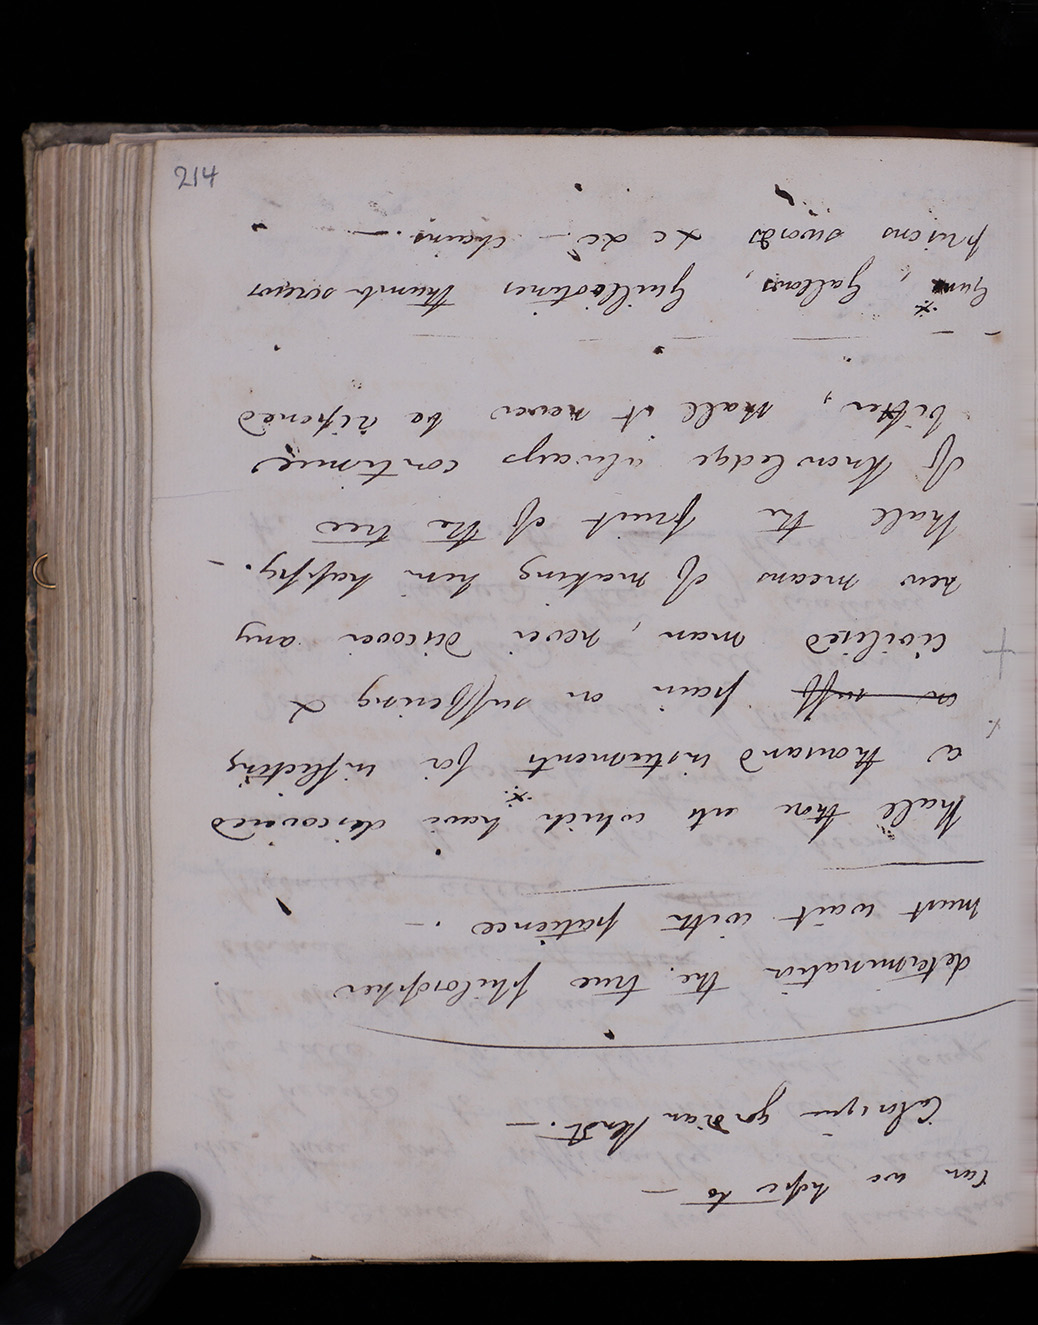 214
Can we hope to —
Calorique gordian Knot. —
determination the true philosopher
must wait with patience. —
Shall those arts which have discovered
a thousand instruments for inflicting
or suff pain or suffering &
civilised man, never discover any
new means of making him happy. —
Shall the fruit of the tree
of Knowledge always continue
bitter, shall it never be ripened
Guns, Gallows, Guillotines thumb screws
prisons swords &c &c — chains. —